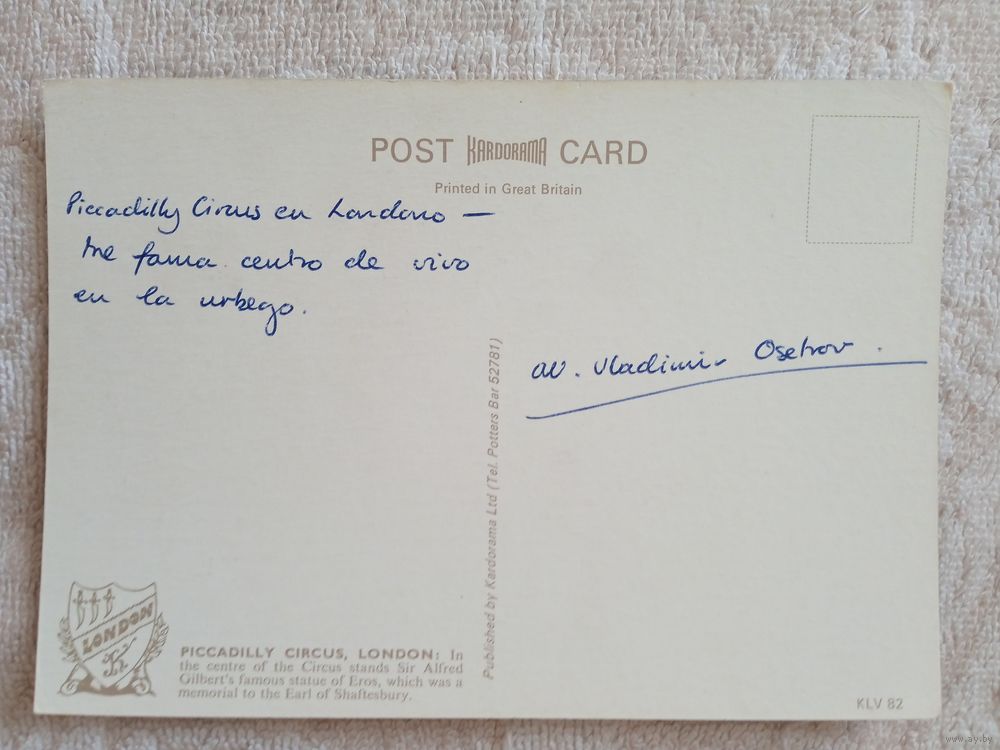 POST KARDORAMA CARD
Printed in Great Britain
Piccadilly Circus en Londono —
tre fama centro de vivo
en la urbego.
Vladimir Osetrov.
Published by Kardorama Ltd (Tel. Potters Bar 52781)
LONDON
PICCADILLY CIRCUS, LONDON: In
the centre of the Circus stands Sir Alfred
Gilbert's famous statue of Eros, which was a
memorial to the Earl of Shaftesbury.
KLV 82
www.ay.by